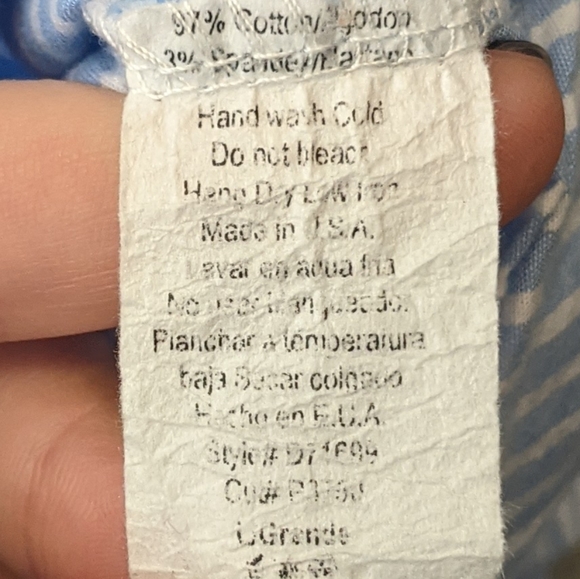 97% Cotton/Algodon
3% Spandex/Elastano
Hand wash Cold
Do not bleach
Hang Dry Low Iron
Made in U.S.A.
Lavar en agua fria
No usar blanqueador
Planchar a temperatura
baja Secar colgado
Hecho en E.U.A.
Style#
Cut#
L/Grande